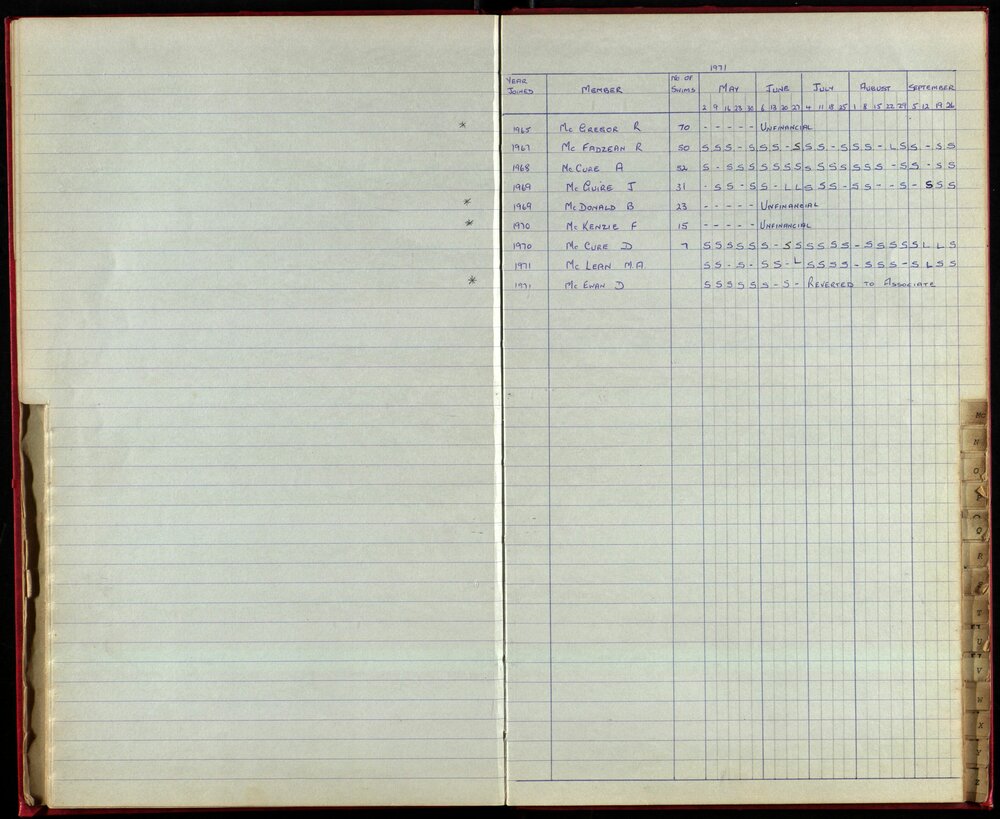 1971
YEAR JOINED MEMBER NO OF SWIMS MAY JUNE JULY AUGUST SEPTEMBER
2 9 16 23 30 6 13 20 27 4 11 18 25 1 8 15 22 29 5 12 19 26
* 1965 Mc GREGOR R 70 - - - - - UNFINANCIAL
1967 Mc FADZEAN R 50 S S S - S S S - S S S - S S S - L S S - S S
1968 Mc CURE A 52 S - S S S S S S S S S S S S S S - S S - S S
1969 Mc GUIRE J 31 - S S - S S - L L S S S - S S - - S - S S S
* 1969 Mc DONALD B 23 - - - - - UNFINANCIAL
* 1970 Mc KENZIE F 15 - - - - - UNFINANCIAL
1970 Mc CURE D 7 S S S S S S - S S S S S S - S S S S S L L S
1971 Mc LEAN M.A. S S - S - S S - L S S S S - S S S - S L S S
* 1971 Mc EWAN D S S S S S S - S - REVERTED TO ASSOCIATE
Mc
N
O
Q
R
T
U
V
W
X
Y
Z